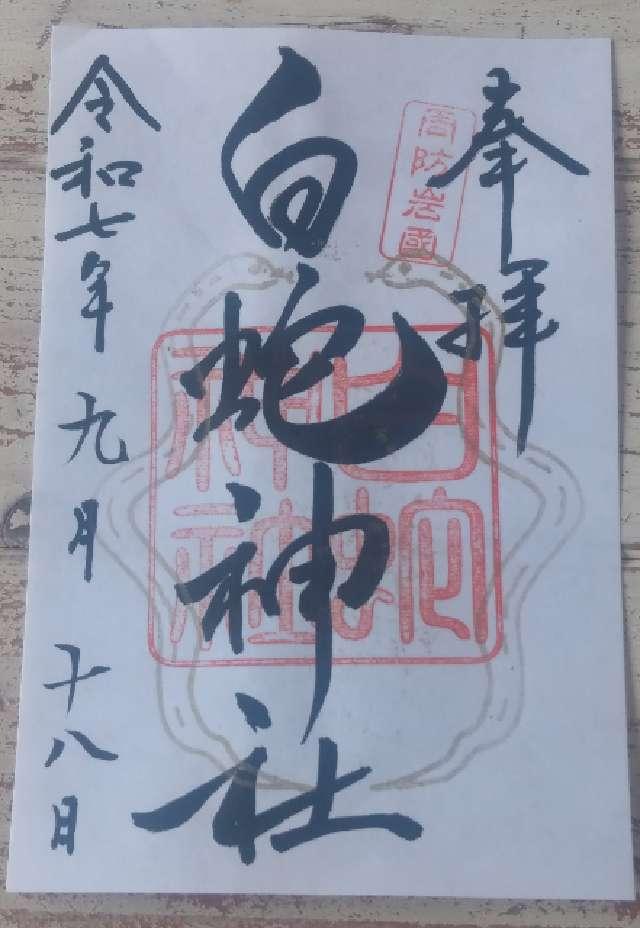 奉拝
周防岩國
白蛇神社
白蛇
神社
令和七年九月十八日